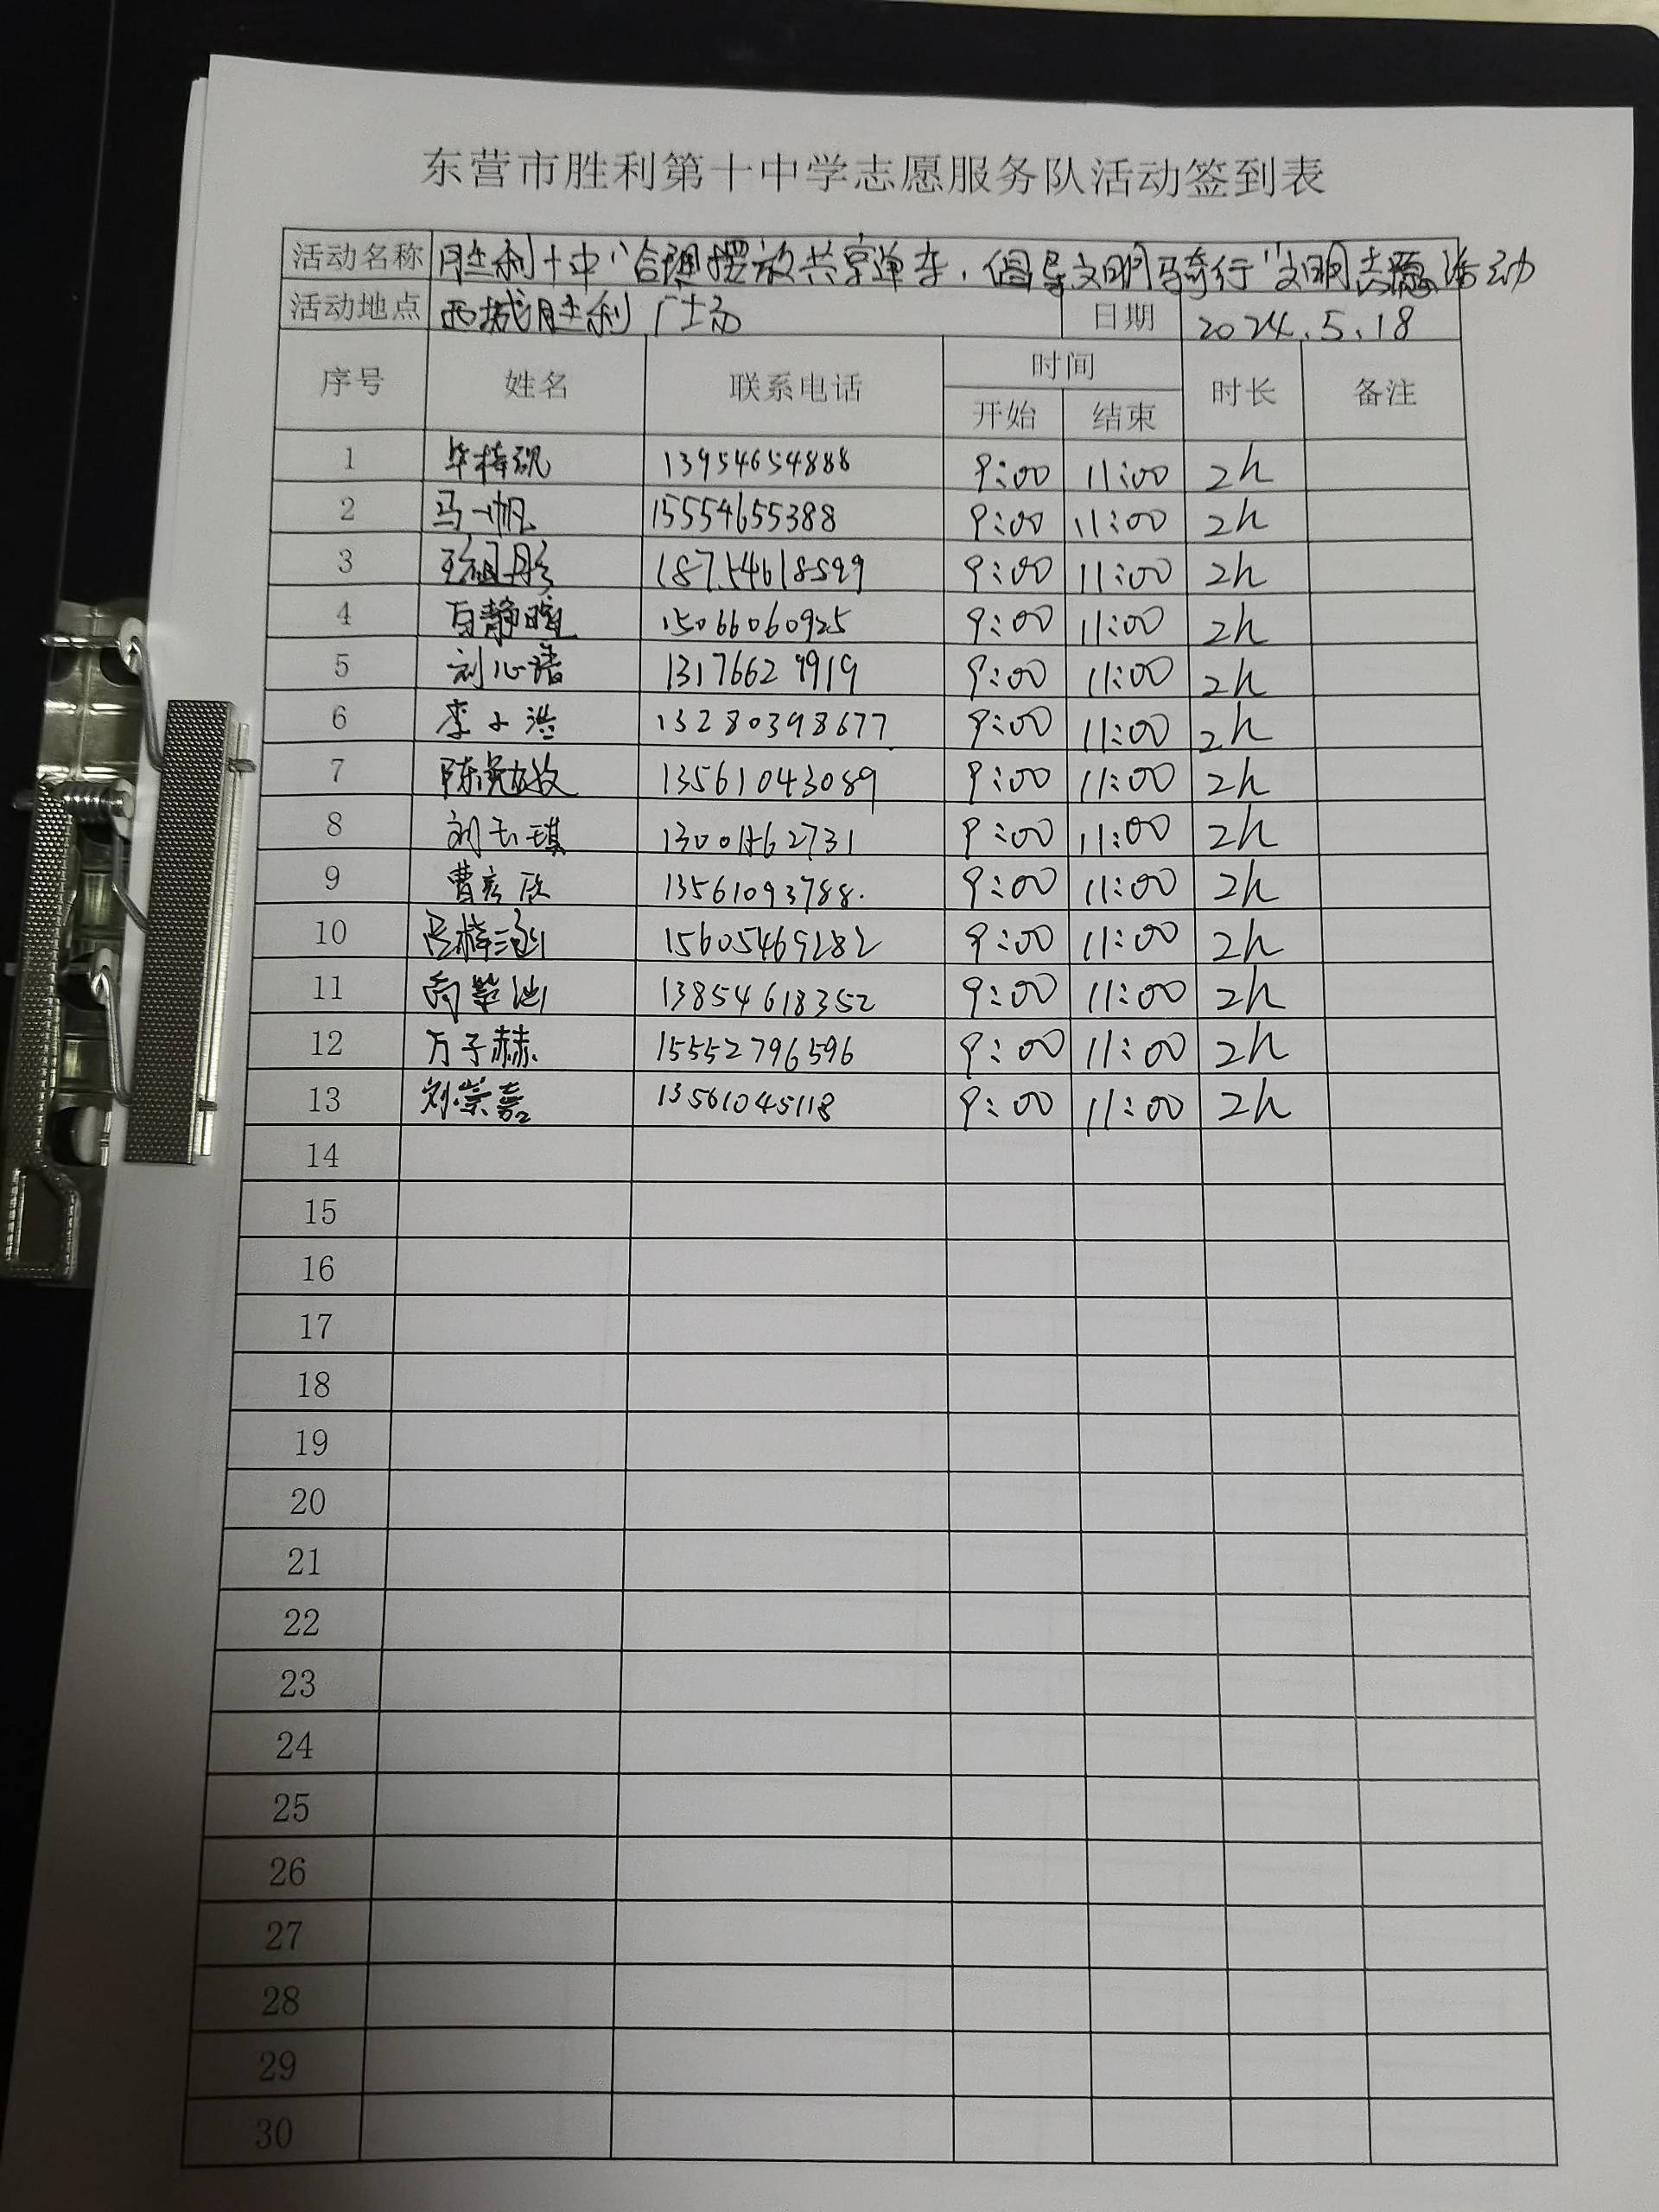 东营市胜利第十中学志愿服务队活动签到表
活动名称 胜利十中"合理摆放共享单车,倡导文明骑行"文明志愿活动
活动地点 西城胜利广场 日期 2024.5.18
序号 姓名 联系电话 时间 时长 备注
开始 结束
1 13954654888 9:00 11:00 2h
2 马一帆 15554655388 9:00 11:00 2h
3 18754618599 9:00 11:00 2h
4 15066060925 9:00 11:00 2h
5 刘心语 13176629919 9:00 11:00 2h
6 李子洪 13280398677 9:00 11:00 2h
7 13561043089 9:00 11:00 2h
8 刘玉琪 9:00 11:00 2h
9 曹彦欣 13561093788. 9:00 11:00 2h
10 15605469282 9:00 11:00 2h
11 13854618352 9:00 11:00 2h
12 万子赫 15552796596 9:00 11:00 2h
13 刘崇嘉 13561045118 9:00 11:00 2h
14
15
16
17
18
19
20
21
22
23
24
25
26
27
28
29
30